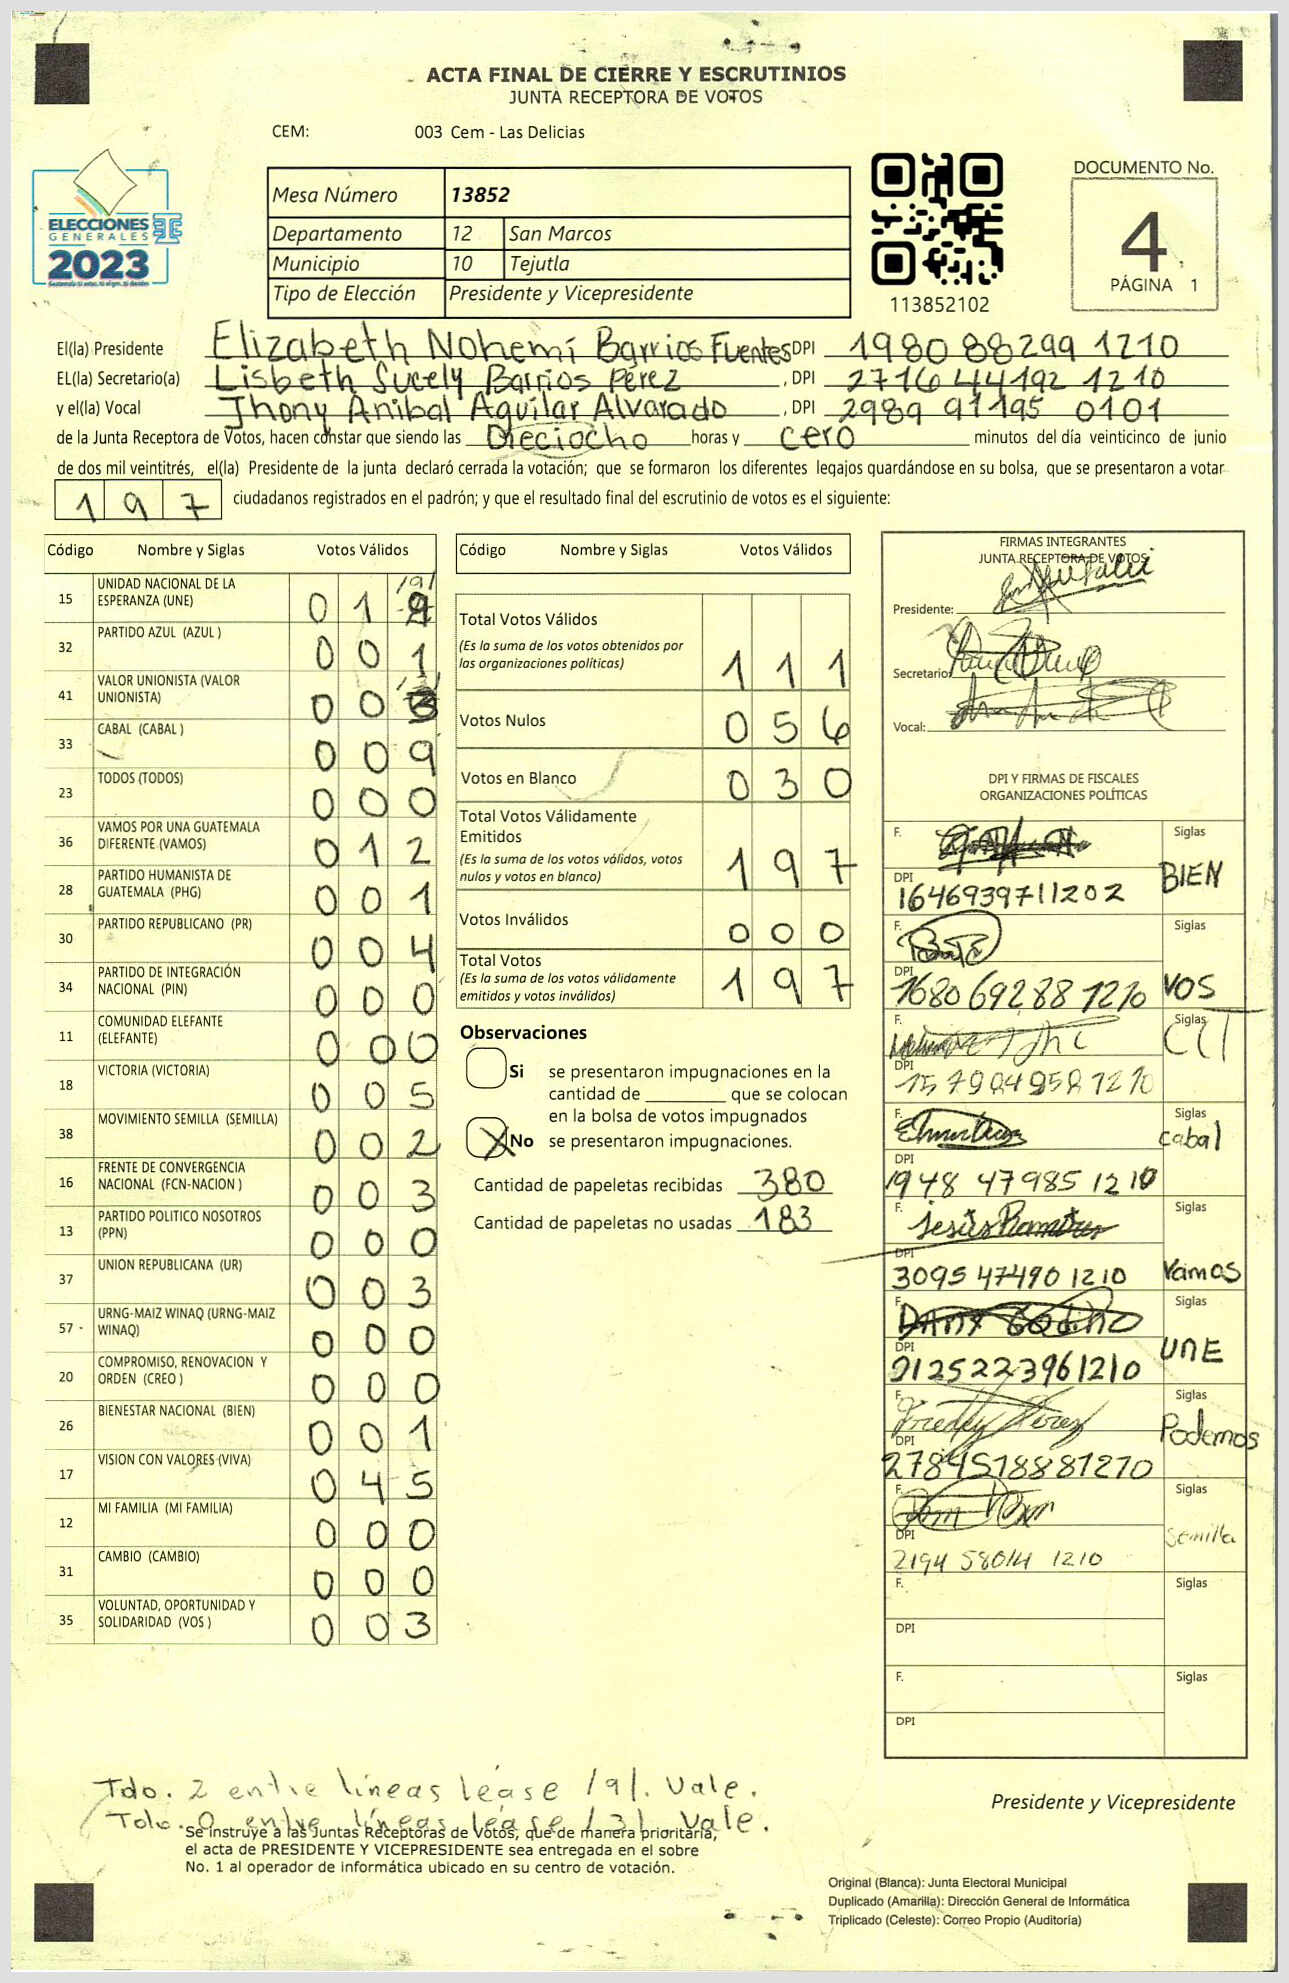 ACTA FINAL DE CIERRE Y ESCRUTINIOS
JUNTA RECEPTORA DE VOTOS
CEM: 003 Cem - Las Delicias
ELECCIONES
GENERALES
2023
Mesa Número 13852
Departamento 12 San Marcos
Municipio 10 Tejutla
Tipo de Elección Presidente y Vicepresidente
113852102
DOCUMENTO No.
4
PÁGINA 1
El(la) Presidente Elizabeth Nohemí Barrios Fuentes DPI 1980 88299 1210
EL(la) Secretario(a) Lisbeth Sucely Barrios Pérez , DPI 2716 44192 1210
y el(la) Vocal Jhony Anibal Aguilar Alvarado , DPI 2989 97195 0101
de la Junta Receptora de Votos, hacen constar que siendo las Dieciocho horas y cero minutos del día veinticinco de junio
de dos mil veintitrés, el(la) Presidente de la junta declaró cerrada la votación; que se formaron los diferentes legajos guardándose en su bolsa, que se presentaron a votar
197 ciudadanos registrados en el padrón; y que el resultado final del escrutinio de votos es el siguiente:
Código Nombre y Siglas Votos Válidos
15 UNIDAD NACIONAL DE LA ESPERANZA (UNE) 0 1 9 /9/
32 PARTIDO AZUL (AZUL ) 0 0 1
41 VALOR UNIONISTA (VALOR UNIONISTA) 0 0 3 /3/
33 CABAL (CABAL ) 0 0 9
23 TODOS (TODOS) 0 0 0
36 VAMOS POR UNA GUATEMALA DIFERENTE (VAMOS) 0 1 2
28 PARTIDO HUMANISTA DE GUATEMALA (PHG) 0 0 1
30 PARTIDO REPUBLICANO (PR) 0 0 4
34 PARTIDO DE INTEGRACIÓN NACIONAL (PIN) 0 0 0
11 COMUNIDAD ELEFANTE (ELEFANTE) 0 0 0
18 VICTORIA (VICTORIA) 0 0 5
38 MOVIMIENTO SEMILLA (SEMILLA) 0 0 2
16 FRENTE DE CONVERGENCIA NACIONAL (FCN-NACION ) 0 0 3
13 PARTIDO POLITICO NOSOTROS (PPN) 0 0 0
37 UNION REPUBLICANA (UR) 0 0 3
57 URNG-MAIZ WINAQ (URNG-MAIZ WINAQ) 0 0 0
20 COMPROMISO, RENOVACION Y ORDEN (CREO ) 0 0 0
26 BIENESTAR NACIONAL (BIEN) 0 0 1
17 VISION CON VALORES (VIVA) 0 4 5
12 MI FAMILIA (MI FAMILIA) 0 0 0
31 CAMBIO (CAMBIO) 0 0 0
35 VOLUNTAD, OPORTUNIDAD Y SOLIDARIDAD (VOS ) 0 0 3
Código Nombre y Siglas Votos Válidos
Total Votos Válidos
(Es la suma de los votos obtenidos por
las organizaciones políticas) 1 1 1
Votos Nulos 0 5 6
Votos en Blanco 0 3 0
Total Votos Válidamente
Emitidos
(Es la suma de los votos válidos, votos
nulos y votos en blanco) 1 9 7
Votos Inválidos 0 0 0
Total Votos
(Es la suma de los votos válidamente
emitidos y votos inválidos) 1 9 7
Observaciones
Si se presentaron impugnaciones en la
cantidad de ________ que se colocan
en la bolsa de votos impugnados
X No se presentaron impugnaciones.
Cantidad de papeletas recibidas 380
Cantidad de papeletas no usadas 183
FIRMAS INTEGRANTES
JUNTA RECEPTORA DE VOTOS
Presidente:
Secretario:
Vocal:
DPI Y FIRMAS DE FISCALES
ORGANIZACIONES POLÍTICAS
F. Siglas
DPI 1646939711202 BIEN
F. Siglas
DPI 1680 69288 1210 VOS
F. Siglas
DPI CIT
F. Siglas
DPI 1948 47985 1210 cabal
F. Jesús Ramirez Siglas
DPI 3095 47490 1210 Vamos
F. Siglas
DPI 0125223961210 UNE
F. Fredy Pérez Siglas
DPI 2784518881210 Podemos
F. Siglas
DPI 2194 58014 1210 Semilla
F. Siglas
DPI
F. Siglas
DPI
Tdo. 2 entre líneas léase /9/. Vale.
Tdo. 0 entre líneas léase /3/. Vale.
Se instruye a las Juntas Receptoras de Votos, que de manera prioritaria,
el acta de PRESIDENTE Y VICEPRESIDENTE sea entregada en el sobre
No. 1 al operador de informática ubicado en su centro de votación.
Presidente y Vicepresidente
Original (Blanca): Junta Electoral Municipal
Duplicado (Amarilla): Dirección General de Informática
Triplicado (Celeste): Correo Propio (Auditoría)